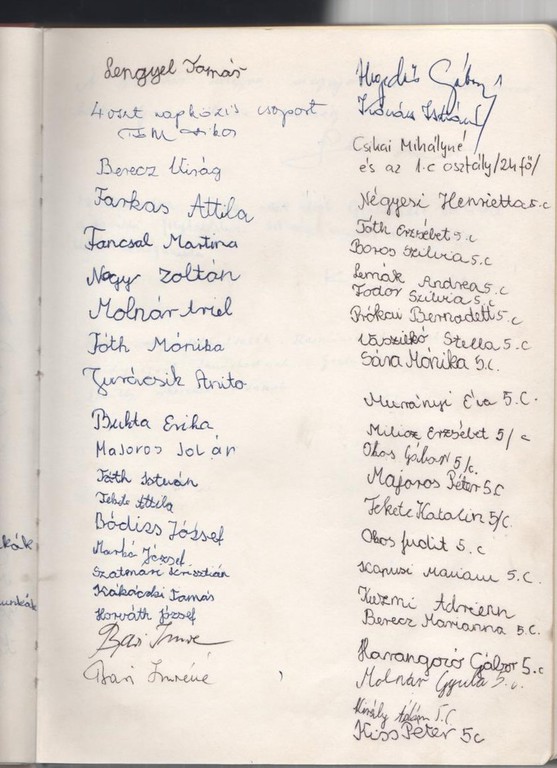 Lengyel Tamás
4. oszt napközis csoport
Berecz Virág
Farkas Attila
Fancsal Martina
Nagy Zoltán
Molnár Ariel
Tóth Mónika
Anita
Bukta Erika
Majoros Zoltán
Tóth István
Fekete Attila
Bódizs József
Markó József
Szatmári Krisztián
Kákóczki Tamás
Horváth József
Bari Imre
Bari Imréné
kák
munkák
Hegedűs Gábor
István
Csikai Mihályné
és az 1.c osztály /24 fő/
Négyesi Henrietta 5.c
Tóth Erzsébet 5.c
Boros Szilvia 5.c
Lemák Andrea 5.c
Fodor Szilvia 5.c
Prókai Bernadett 5.c
Vaszilkó Stella 5.c
Sára Mónika 5.c.
Murányi Éva 5.C.
Milicz Erzsébet 5/c
Okos Gábor 5/c.
Majoros Péter 5c
Fekete Katalin 5/C.
Okos Judit 5.c
Kapusi Mariann 5.C.
Kuzmi Adrienn
Berecz Marianna 5.C.
Harangozó Gábor 5.c
Molnár Gyula 5.c.
Király Ádám 5.C
Kiss Péter 5c